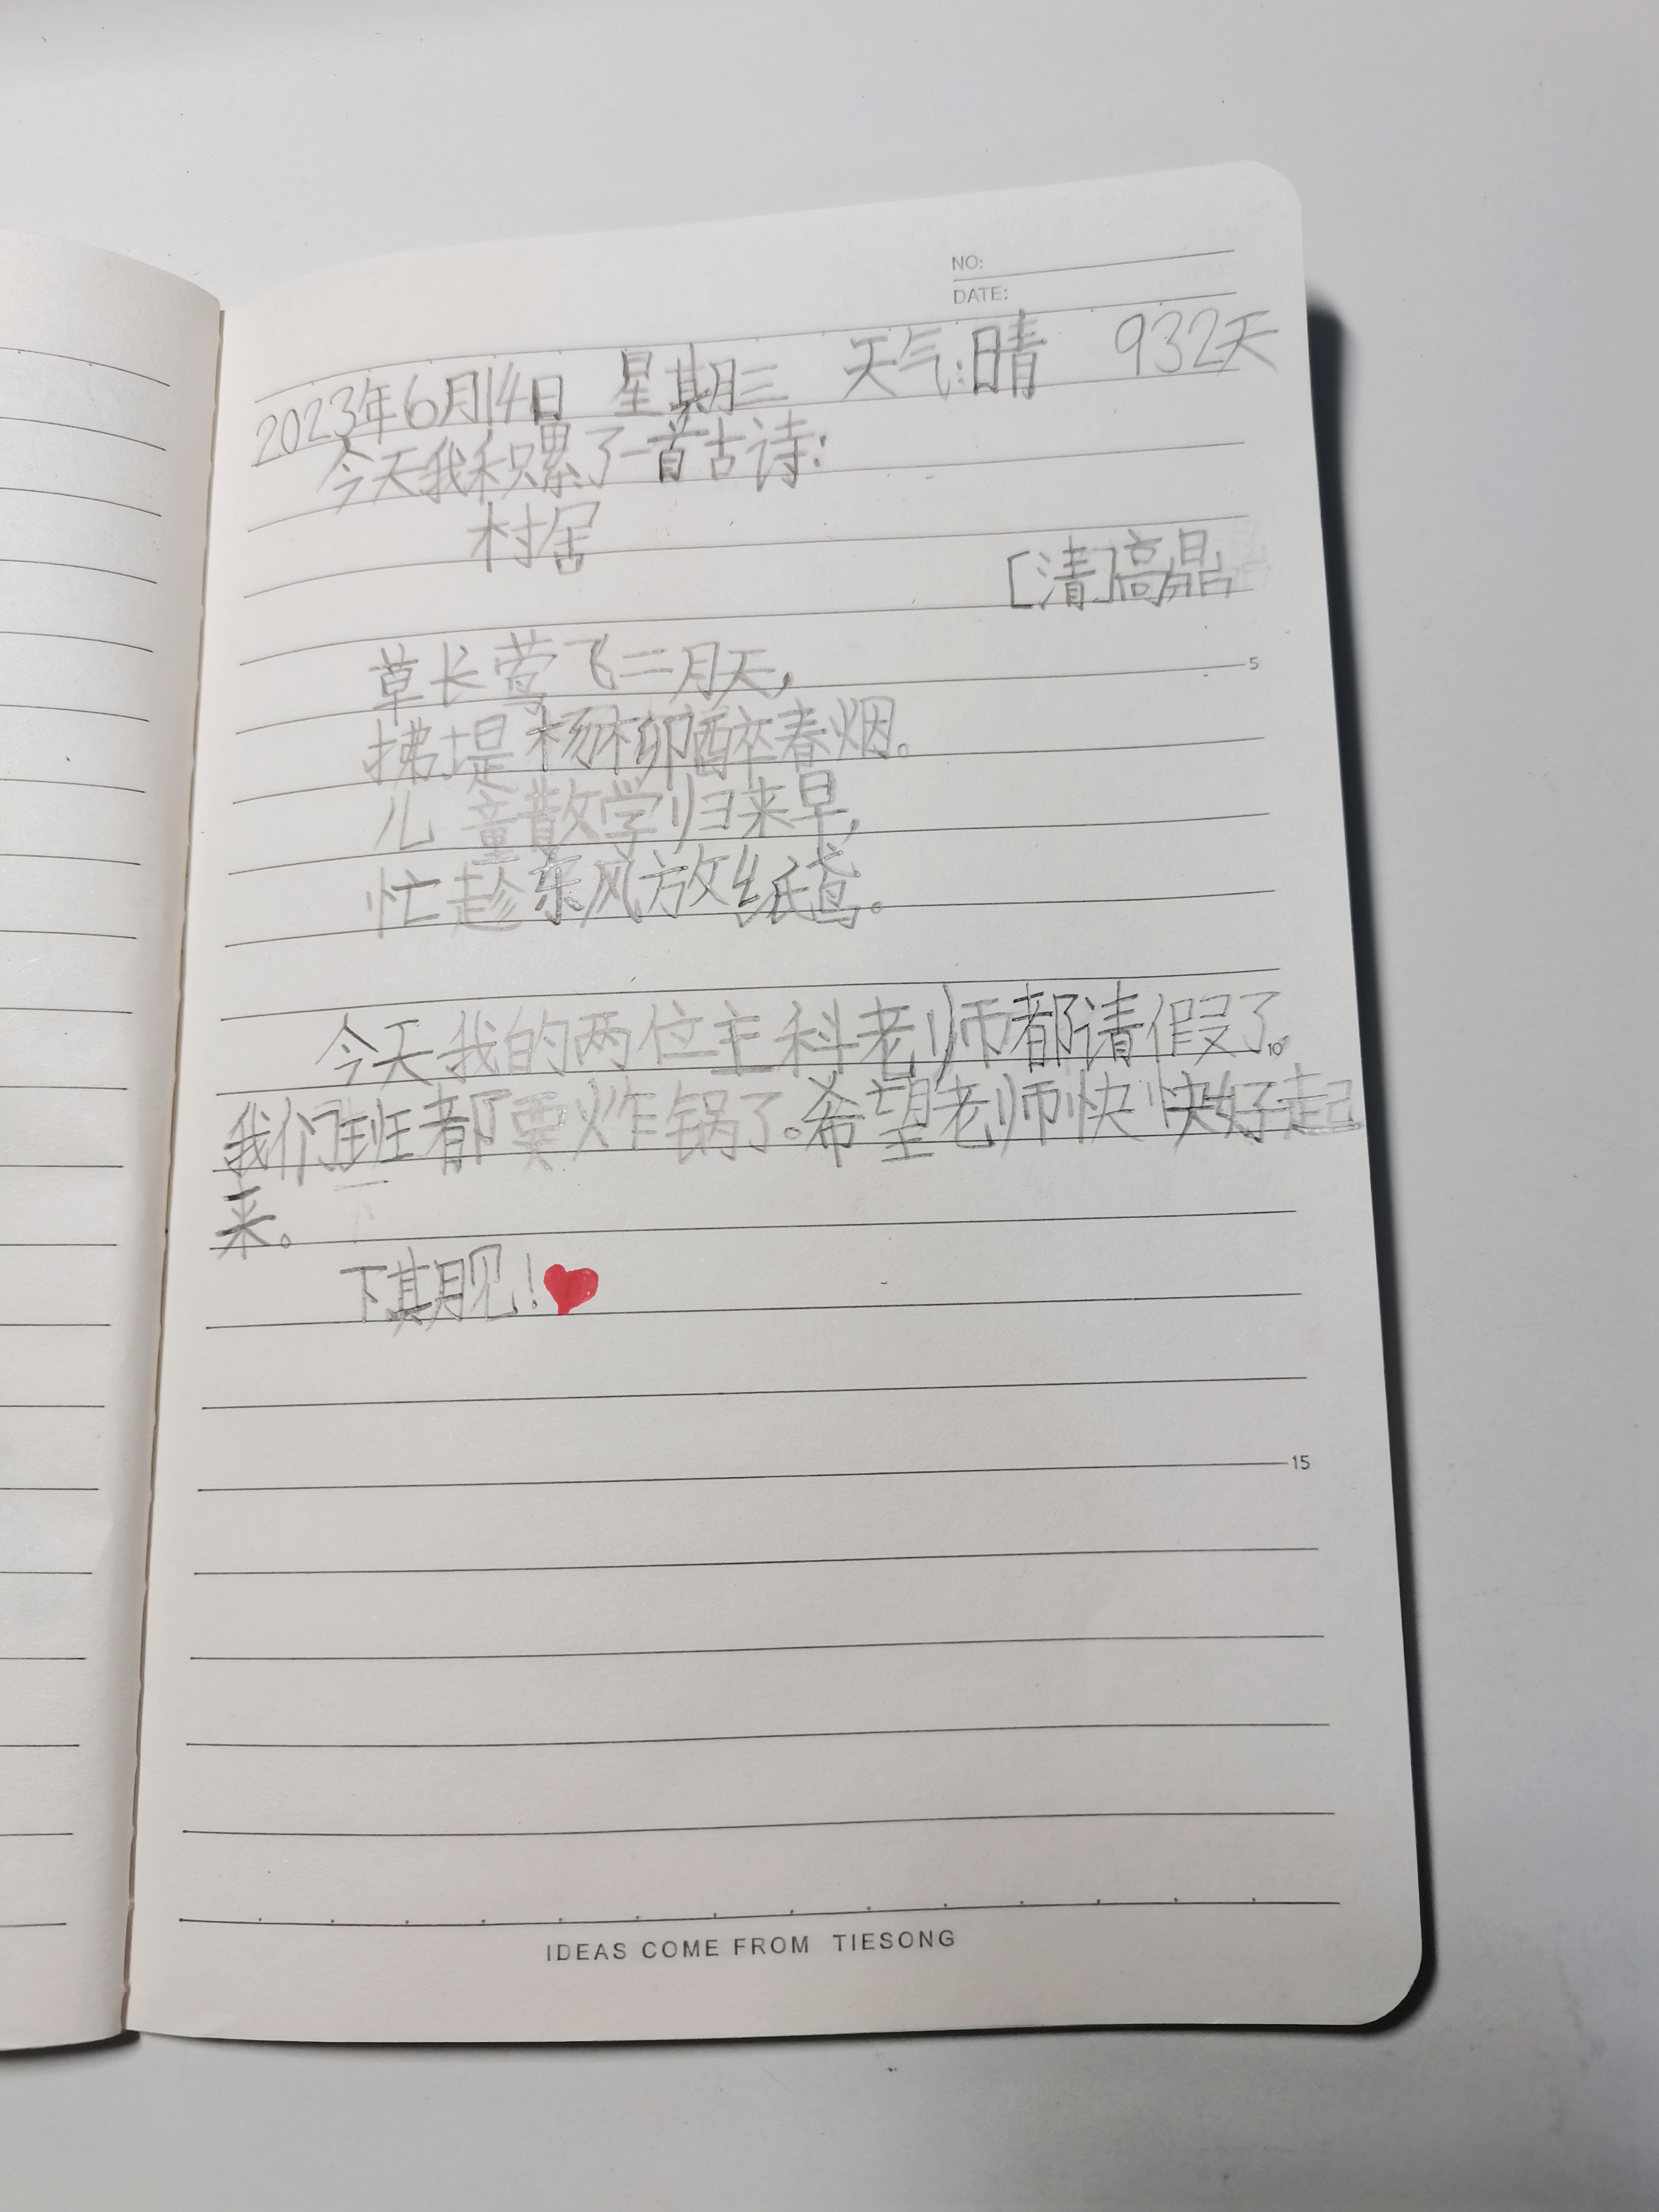 NO:
DATE:
2023年6月14日 星期三 天气:晴 932天
今天我积累了一首古诗:
村居
[清]高
草长莺飞二月天,
5
拂堤杨柳醉春烟。
儿童散学归来早,
忙趁东风放纸鸢。
今天我的两位主科老师都请假了.
10
我们班都要炸锅了。希望老师快快好起
来。
下期见!
15
IDEAS COME FROM TIESONG